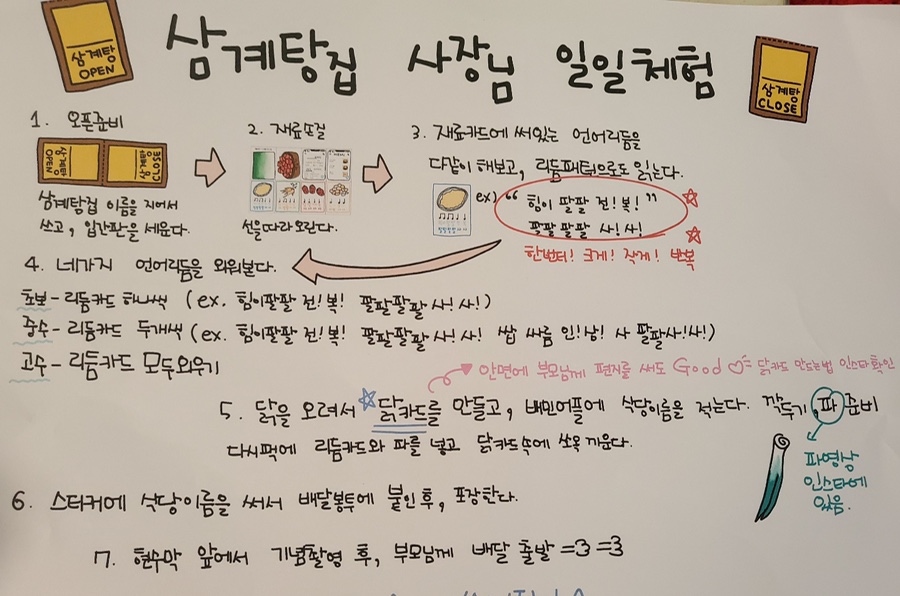 삼계탕집 사장님 일일체험
삼계탕
OPEN
삼계탕
CLOSE
1. 오픈준비
삼계탕
OPEN
삼계탕
CLOSE
삼계탕집 이름을 지어서
쓰고, 입간판을 세운다.
2. 재료손질
선을따라오린다.
3. 재료카드에 써있는 언어리듬을
다같이 해보고, 리듬패턴으로도 읽는다.
ex) "힘이 팔팔 전! 복!"
팔팔팔팔 사! 사!
한번더! 크게! 작게! 반복
4. 네가지 언어리듬을 외워본다.
초보 - 리듬카드 하나씩 (ex. 힘이팔팔 전! 복! 팔팔팔팔 사! 사!)
중수 - 리듬카드 두개씩 (ex. 힘이팔팔 전! 복! 팔팔팔팔 사! 사! 쌉싸름 인! 삼! 사팔팔사! 사!)
고수 - 리듬카드 모두외우기
안면에 부모님께 편지를 써도 Good 닭카드 만드는법 인스타확인
5. 닭을 오려서 닭카드를 만들고, 배민어플에 식당이름을 적는다. 깍두기, 파 준비
다시팩에 리듬카드와 파를 넣고 닭카드속에 쏘옥 끼운다.
파영상
인스타에
있음.
6. 스티커에 식당이름을 써서 배달봉투에 붙인후, 포장한다.
7. 현수막 앞에서 기념촬영 후, 부모님께 배달 출발 =3 =3